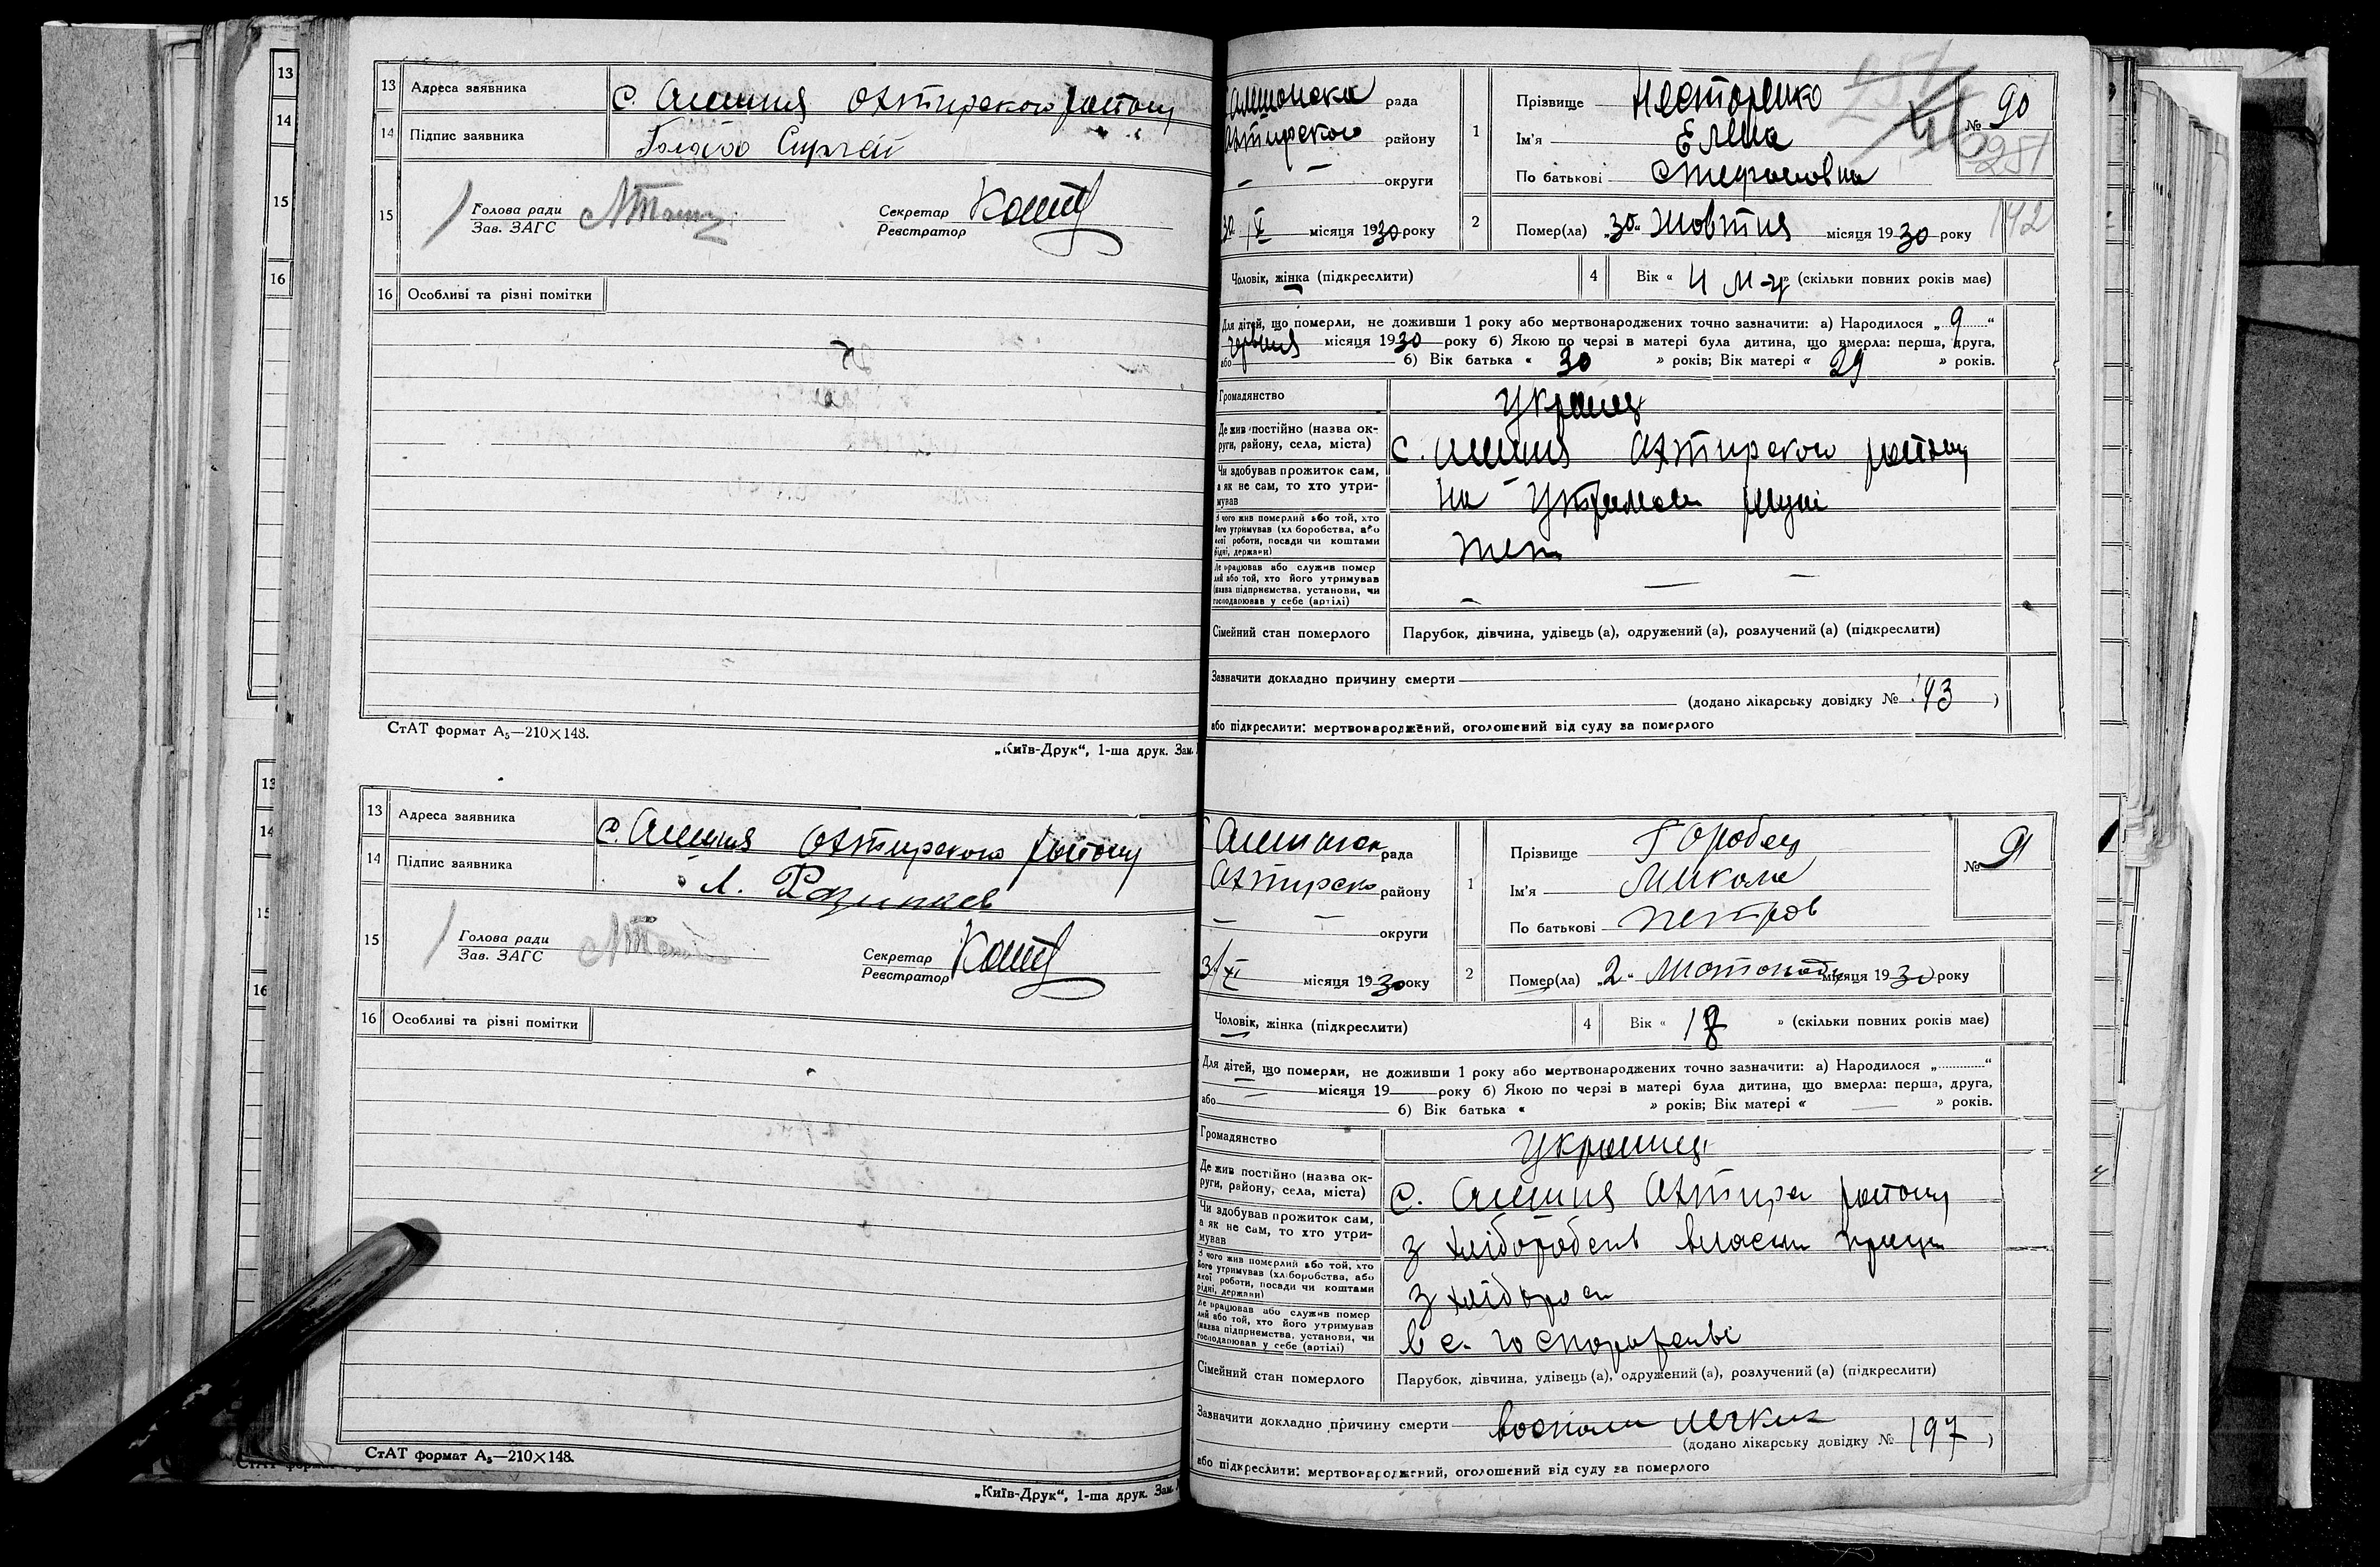 13 Адреса заявника с. Алешня Охтирского району
14 Підпис заявника Голобо Сергей
15 Голова ради
Зав. ЗАГС
Секретар
Реєстратор
16 Особливі та різні помітки
СтАТ формат А₅—210×148.
„Київ-Друк“, 1-ша друк. Зам.
13 Адреса заявника с. Алешня Охтирского району
14 Підпис заявника Л.
15 Голова ради
Зав. ЗАГС
Секретар
Реєстратор
16 Особливі та різні помітки
СтАТ формат А₅—210×148.
„Київ-Друк“, 1-ша друк. Зам.
рада
Охтирского району
— — округи
30 X місяця 1930 року
1 Прізвище Нестеренко
Ім'я Елена
По батькові Стефановна
№ 90
251
2 Помер(ла) „30“ Жовтня місяця 1930 року
192
Чоловік, жінка (підкреслити)
4 Вік « 4 м-ц » (скільки повних років має)
Для дітей, що померли, не доживши 1 року або мертвонароджених точно зазначити: а) Народилося „9“
червня місяця 1930 року б) Якою по черзі в матері була дитина, що вмерла: перша, друга,
або б) Вік батька « 30 » років; Вік матері « 29 » років.
Громадянство Українец
Де жив постійно (назва ок-
руги, району, села, міста) с. Алешня Охтирского району
Чи здобував прожиток сам,
а як не сам, то хто утри-
мував на
З чого жив померлий або той, хто
його утримував (хліборобства, або
якої роботи, посади чи коштами
рідні, держави)
Де працював або служив помер
лий або той, хто його утримував
(назва підприємства, установи, чи
господарював у себе (артілі) — — —
Сімейний стан померлого Парубок, дівчина, удівець (а), одружений (а), розлучений (а) (підкреслити)
Зазначити докладно причину смерти
(додано лікарську довідку № 193 )
або підкреслити: мертвонароджений, оголошений від суду за померлого
рада
Охтирско району
— — округи
3/XI місяця 1930 року
1 Прізвище Горобец
Ім'я Микола
По батькові Петров
№ 91
2 Помер(ла) „2“ Листопада місяця 1930 року
Чоловік, жінка (підкреслити)
4 Вік « » (скільки повних років має)
Для дітей, що померли, не доживши 1 року або мертвонароджених точно зазначити: а) Народилося „ “
— місяця 19 року б) Якою по черзі в матері була дитина, що вмерла: перша, друга,
або б) Вік батька « » років; Вік матері « — » років.
Громадянство Українец
Де жив постійно (назва ок-
руги, району, села, міста) с. Алешня Охтирс району
Чи здобував прожиток сам,
а як не сам, то хто утри-
мував з
З чого жив померлий або той, хто
його утримував (хліборобства, або
якої роботи, посади чи коштами
рідні, держави) з
Де працював або служив помер
лий або той, хто його утримував
(назва підприємства, установи, чи
господарював у себе (артілі) в с. господарстві
Сімейний стан померлого Парубок, дівчина, удівець (а), одружений (а), розлучений (а) (підкреслити)
Зазначити докладно причину смерти воспален легких
(додано лікарську довідку № 197 )
або підкреслити: мертвонароджений, оголошений від суду за померлого